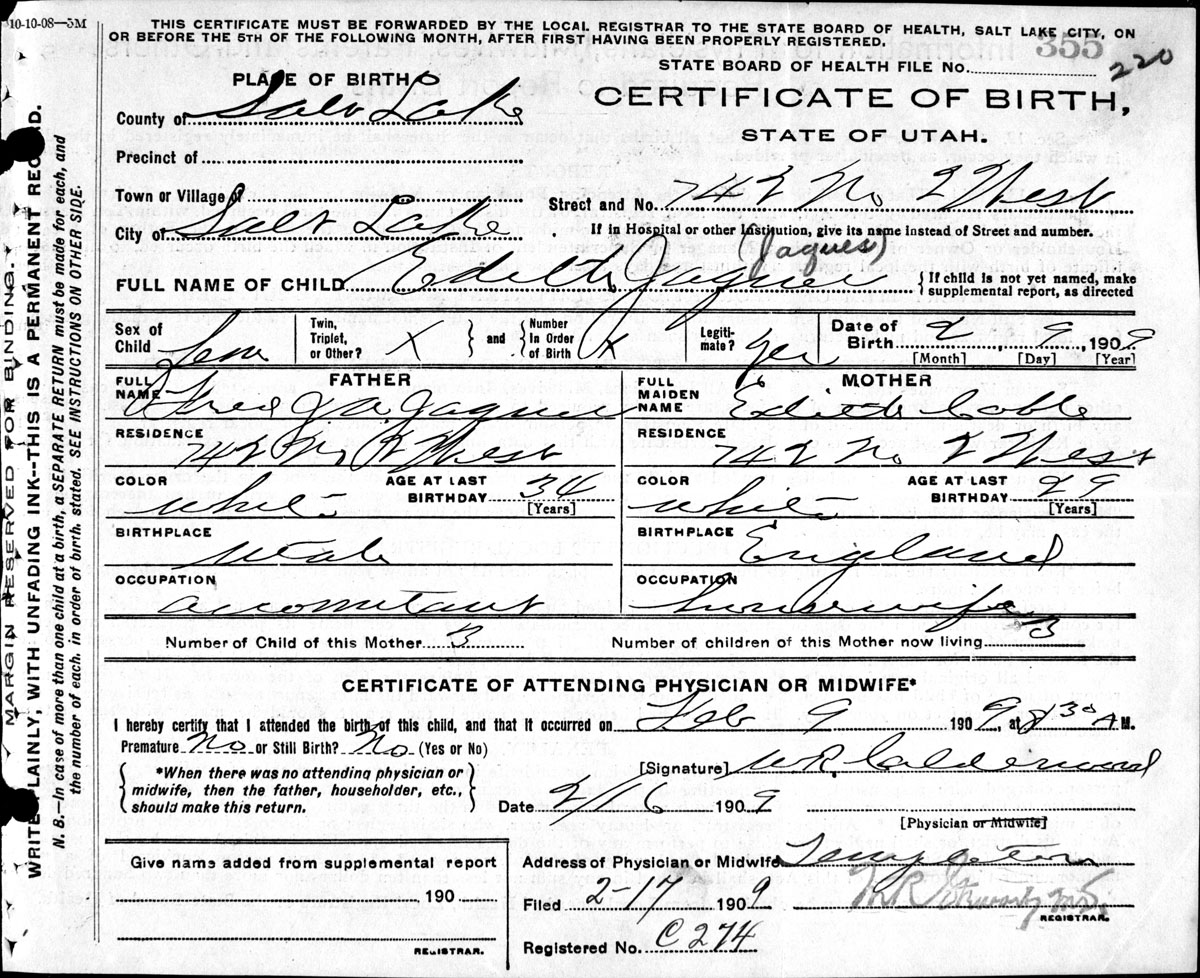 10-10-08—5M
THIS CERTIFICATE MUST BE FORWARDED BY THE LOCAL REGISTRAR TO THE STATE BOARD OF HEALTH, SALT LAKE CITY, ON
OR BEFORE THE 5TH OF THE FOLLOWING MONTH, AFTER FIRST HAVING BEEN PROPERLY REGISTERED.
355
STATE BOARD OF HEALTH FILE No. 220
PLACE OF BIRTH
CERTIFICATE OF BIRTH,
STATE OF UTAH.
County of Salt Lake
Precinct of
Town or Village of
Street and No. 742 No 2 West
City of Salt Lake
If in Hospital or other Institution, give its name instead of Street and number.
(Jaques)
FULL NAME OF CHILD Edith Jaques
{ If child is not yet named, make
supplemental report, as directed
Sex of Child Fem
Twin, Triplet, or Other? X } and { Number In Order of Birth X
Legitimate? yes
Date of Birth 2, 9, 1909
[Month] [Day] [Year]
FATHER
FULL NAME Alfred Jaques
RESIDENCE 742 No 2 West
COLOR White
AGE AT LAST BIRTHDAY 34 [Years]
BIRTHPLACE Utah
OCCUPATION accountant
MOTHER
FULL MAIDEN NAME Edith Coble
RESIDENCE 742 No 2 West
COLOR White
AGE AT LAST BIRTHDAY 29 [Years]
BIRTHPLACE England
OCCUPATION housewife
Number of Child of this Mother 3
Number of children of this Mother now living 3
CERTIFICATE OF ATTENDING PHYSICIAN OR MIDWIFE*
I hereby certify that I attended the birth of this child, and that it occurred on Feb 9 1909, at 830 A M.
Premature No or Still Birth? No (Yes or No)
{ *When there was no attending physician or
midwife, then the father, householder, etc.,
should make this return. }
[Signature] W.R. Calderwood
Date 2/16 1909
[Physician or Midwife]
Give name added from supplemental report
190
REGISTRAR.
Address of Physician or Midwife Templeton
Filed 2-17 1909
REGISTRAR.
Registered No. C 274
MARGIN RESERVED FOR BINDING.
WRITE PLAINLY, WITH UNFADING INK--THIS IS A PERMANENT RECORD.
N. B.—In case of more than one child at a birth, a SEPARATE RETURN must be made for each, and
the number of each, in order of birth, stated. SEE INSTRUCTIONS ON OTHER SIDE.